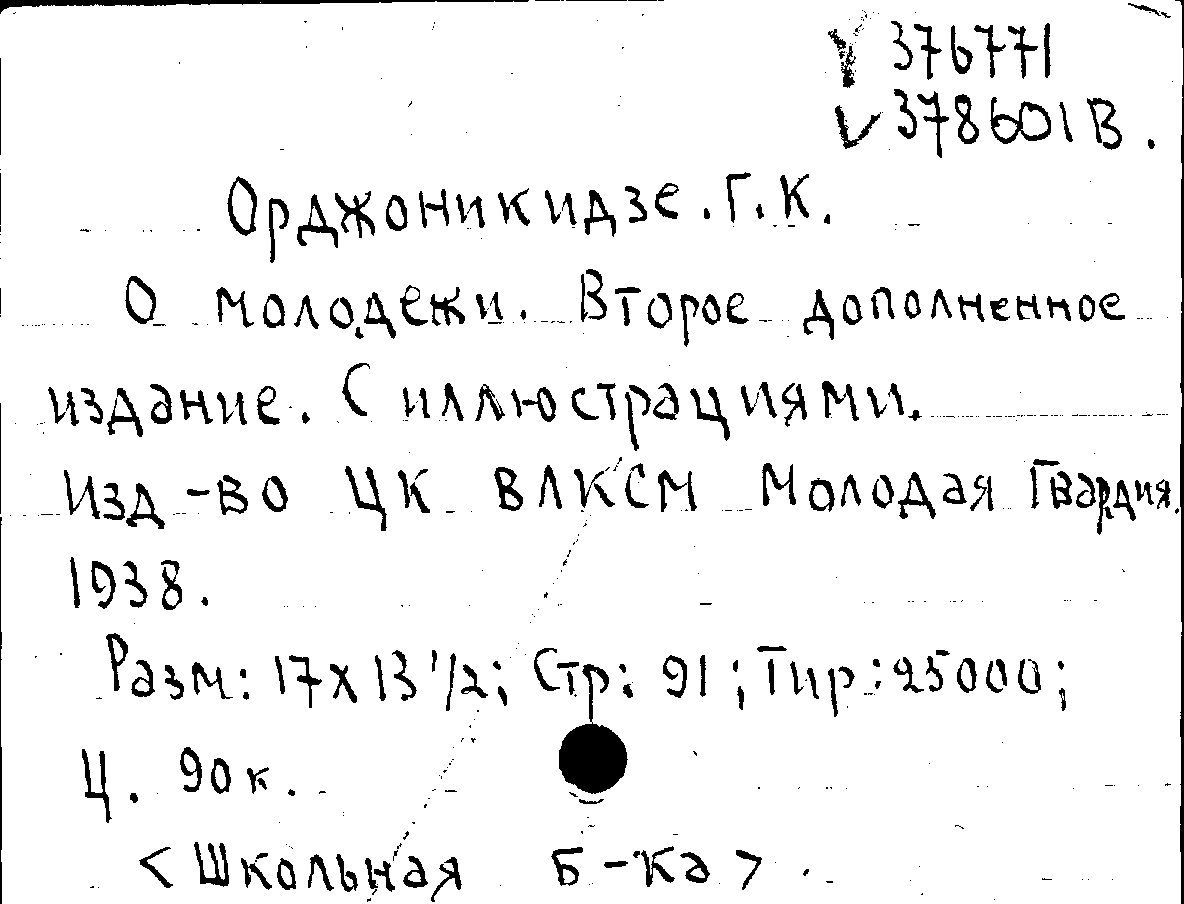 376771
378601В.
Орджоникидзе.Г.К.
О молодежи. Второе дополненное
издание. С иллюстрациями.
Изд-во ЦК ВЛКСМ Молодая Гвардия.
1938.
Разм: 17х13 1/2; Стр: 91; Тир: 25000;
Ц. 90к.
<Школьная Б-ка>.